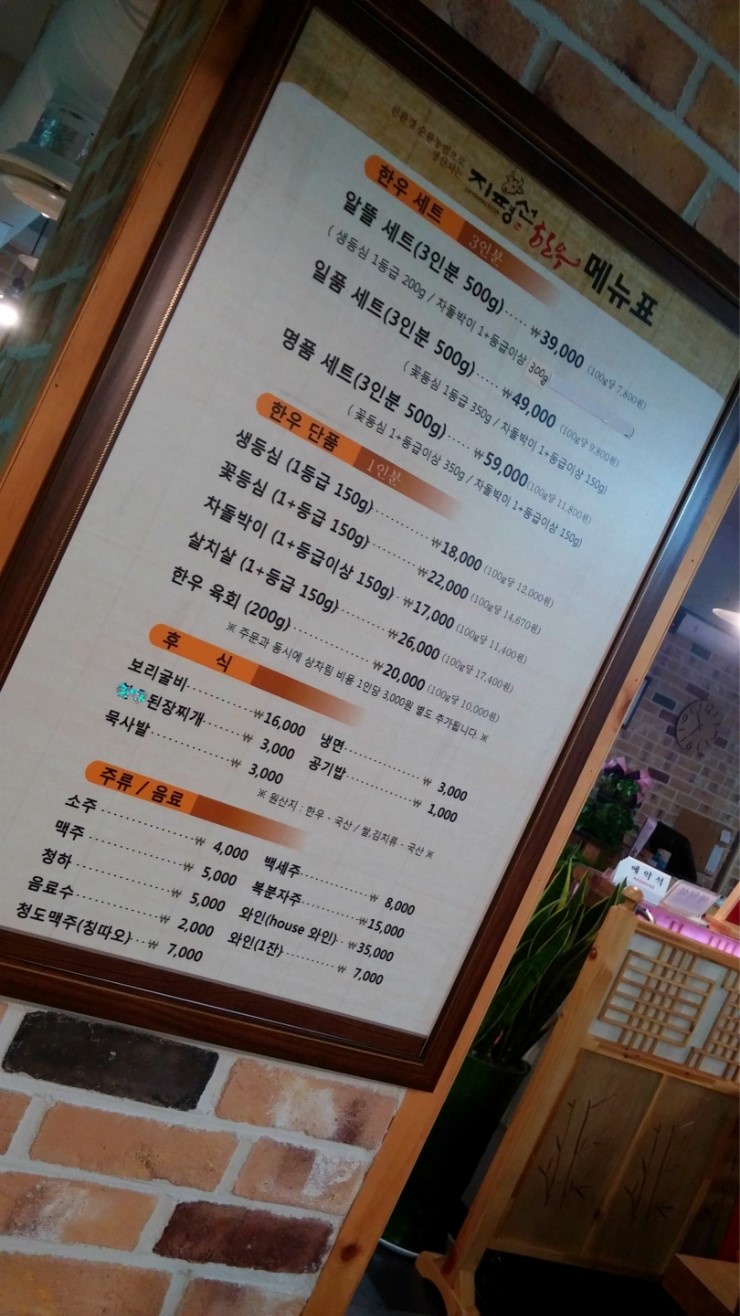 친환경 순환농법으로
생산되는 지평선 한우 메뉴표
한우 세트 3인분
알뜰 세트(3인분 500g)······ ₩39,000 (100g당 7,800원)
( 생등심 1등급 200g / 차돌박이 1+등급이상 300g
일품 세트(3인분 500g)····· ₩49,000 (100g당 9,800원)
( 꽃등심 1등급 350g / 차돌박이 1+등급이상 150g)
명품 세트(3인분 500g)····· ₩59,000(100g당 11,800원)
( 꽃등심 1+등급이상 350g / 차돌박이 1+등급이상 150g)
한우 단품 1인분
생등심 (1등급 150g)·········· ₩18,000 (100g당 12,000원)
꽃등심 (1+등급 150g)········· ₩22,000 (100g당 14,670원)
차돌박이 (1+등급이상 150g)·· ₩17,000 (100g당 11,400원)
살치살 (1+등급 150g)·········· ₩26,000 (100g당 17,400원)
한우 육회 (200g)··············· ₩20,000 (100g당 10,000원)
※ 주문과 동시에 상차림 비용 1인당 3,000원 별도 추가됩니다. ※
후 식
보리굴비············ ₩16,000 냉면·············· ₩ 3,000
된장찌개········ ₩ 3,000 공기밥·············· ₩ 1,000
묵사발·············· ₩ 3,000
※ 원산지 : 한우 - 국산 / 쌀,김치류 - 국산 ※
주류 / 음료
소주 ················· ₩ 4,000 백세주·············· ₩ 8,000
맥주 ················· ₩ 5,000 복분자주············ ₩15,000
청하 ················· ₩ 5,000 와인(house 와인)·· ₩35,000
음료수 ·············· ₩ 2,000 와인(1잔)·········· ₩ 7,000
청도맥주(칭따오)··· ₩ 7,000
예약석